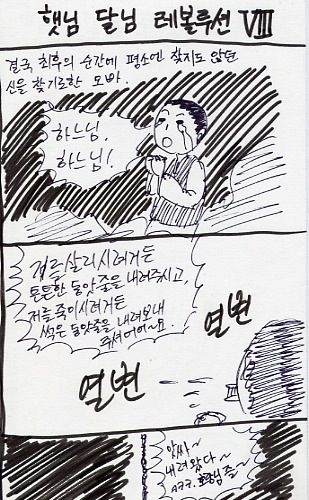 햇님 달님 레볼루션 VIII
결국 최후의 순간에 평소엔 찾지도 않던
신을 찾기로한 오빠.
하느님,
하느님!
저를 살리시려거든
튼튼한 동앗줄을 내려주시고,
저를 죽이시려거든
썩은 동앗줄을 내려보내
주셔어어~요.
열변
열변
앗싸~
내려왔다~